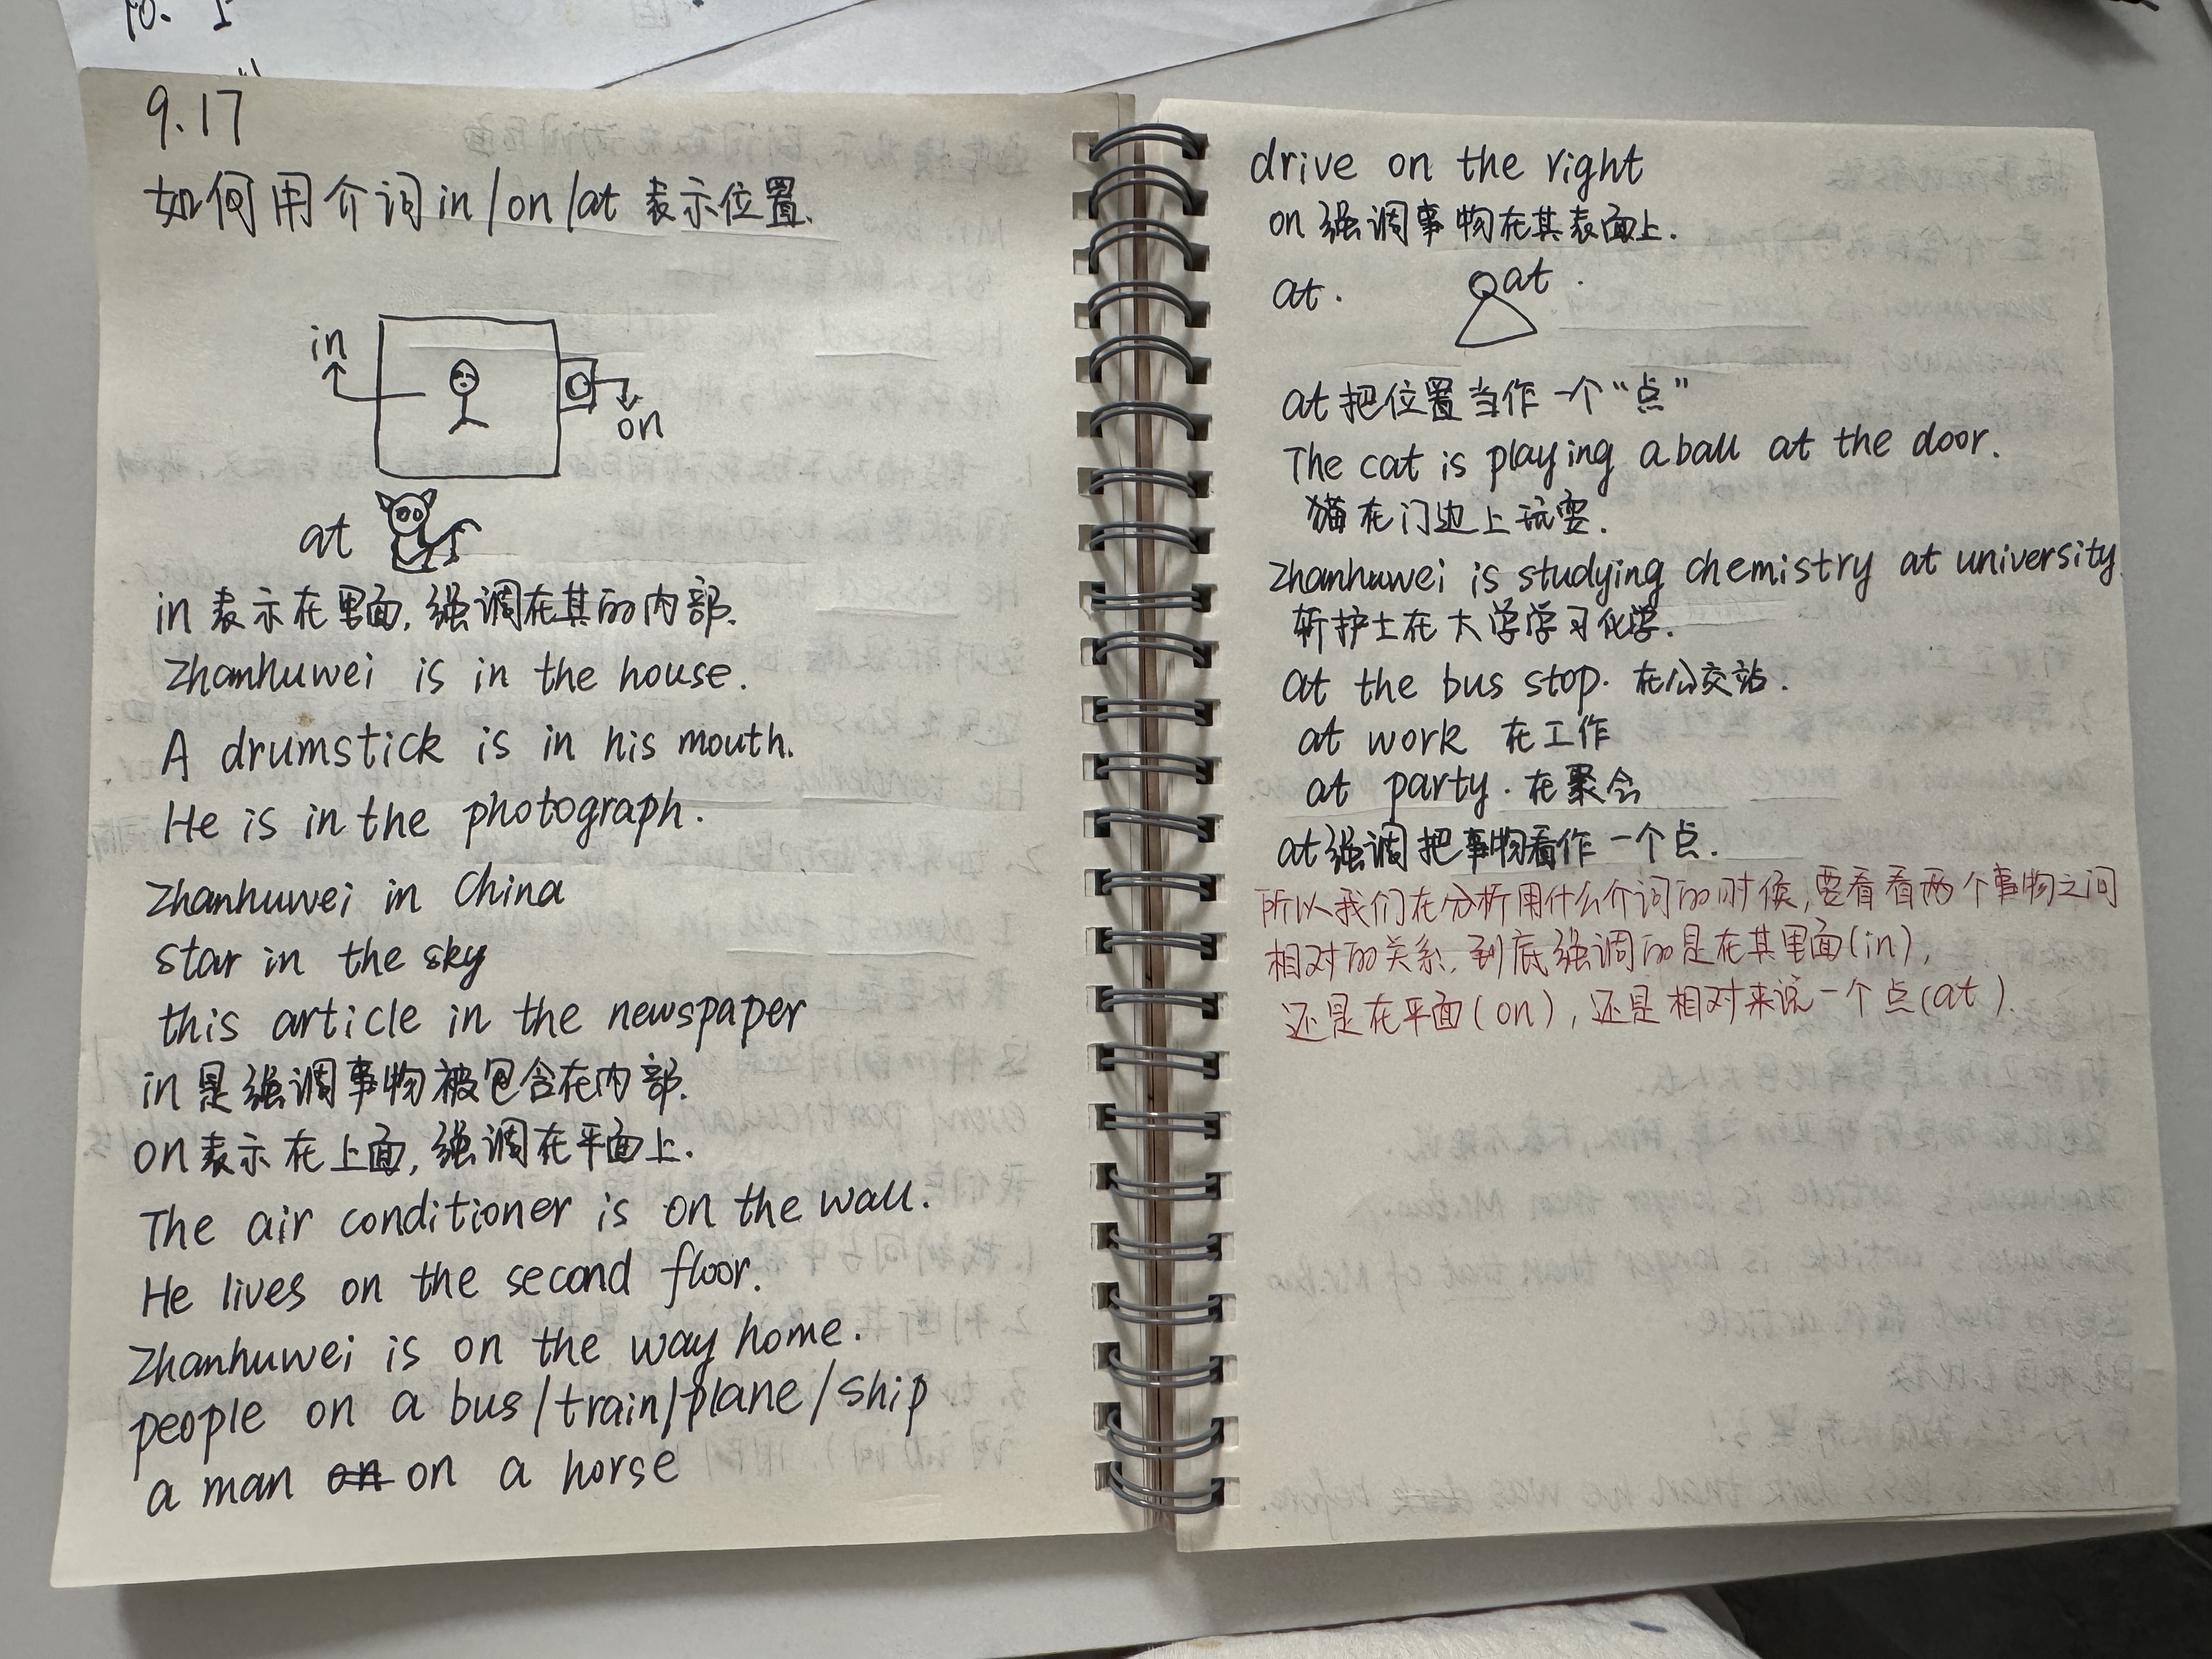 9.17
如何用介词in/on/at 表示位置.
in
on
at
in 表示在里面, 强调在其的内部.
Zhanhuwei is in the house.
A drumstick is in his mouth.
He is in the photograph.
Zhanhuwei in China
star in the sky
this article in the newspaper
in 是强调事物被包含在内部.
on 表示在上面, 强调在平面上.
The air conditioner is on the wall.
He lives on the second floor.
Zhanhuwei is on the way home.
people on a bus/train/plane/ship
a man on on a horse
drive on the right
on 强调事物在其表面上.
at. at.
at 把位置当作一个“点”
The cat is playing a ball at the door.
猫在门边上玩耍.
Zhanhuwei is studying chemistry at university.
斩护士在大学学习化学.
at the bus stop. 在公交站.
at work 在工作
at party. 在聚会
at强调把事物看作一个点.
所以我们在分析用什么介词的时候, 要看看两个事物之间
相对的关系, 到底强调的是在其里面(in),
还是在平面(on), 还是相对来说一个点(at).